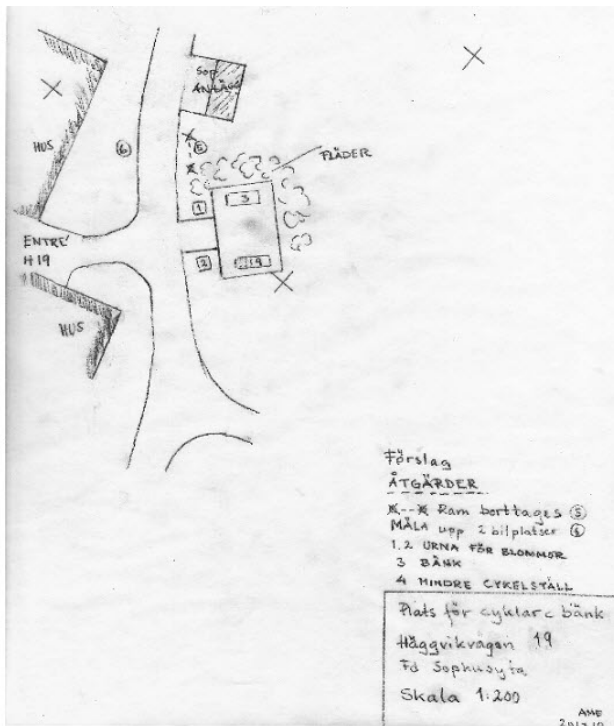 SOP
ANLÄGG
HUS
6
5
FLÄDER
1
3
ENTRÉ
H 19
2
HUS
Förslag
ÅTGÄRDER
X--X Ram borttages 5
MÅLA upp 2 bilplatser 6
1.2 URNA FÖR BLOMMOR
3 BÄNK
4 MINDRE CYKELSTÄLL
Plats för cyklar o bänk
Häggvikvägen 19
Fd Sophusyta
Skala 1:200